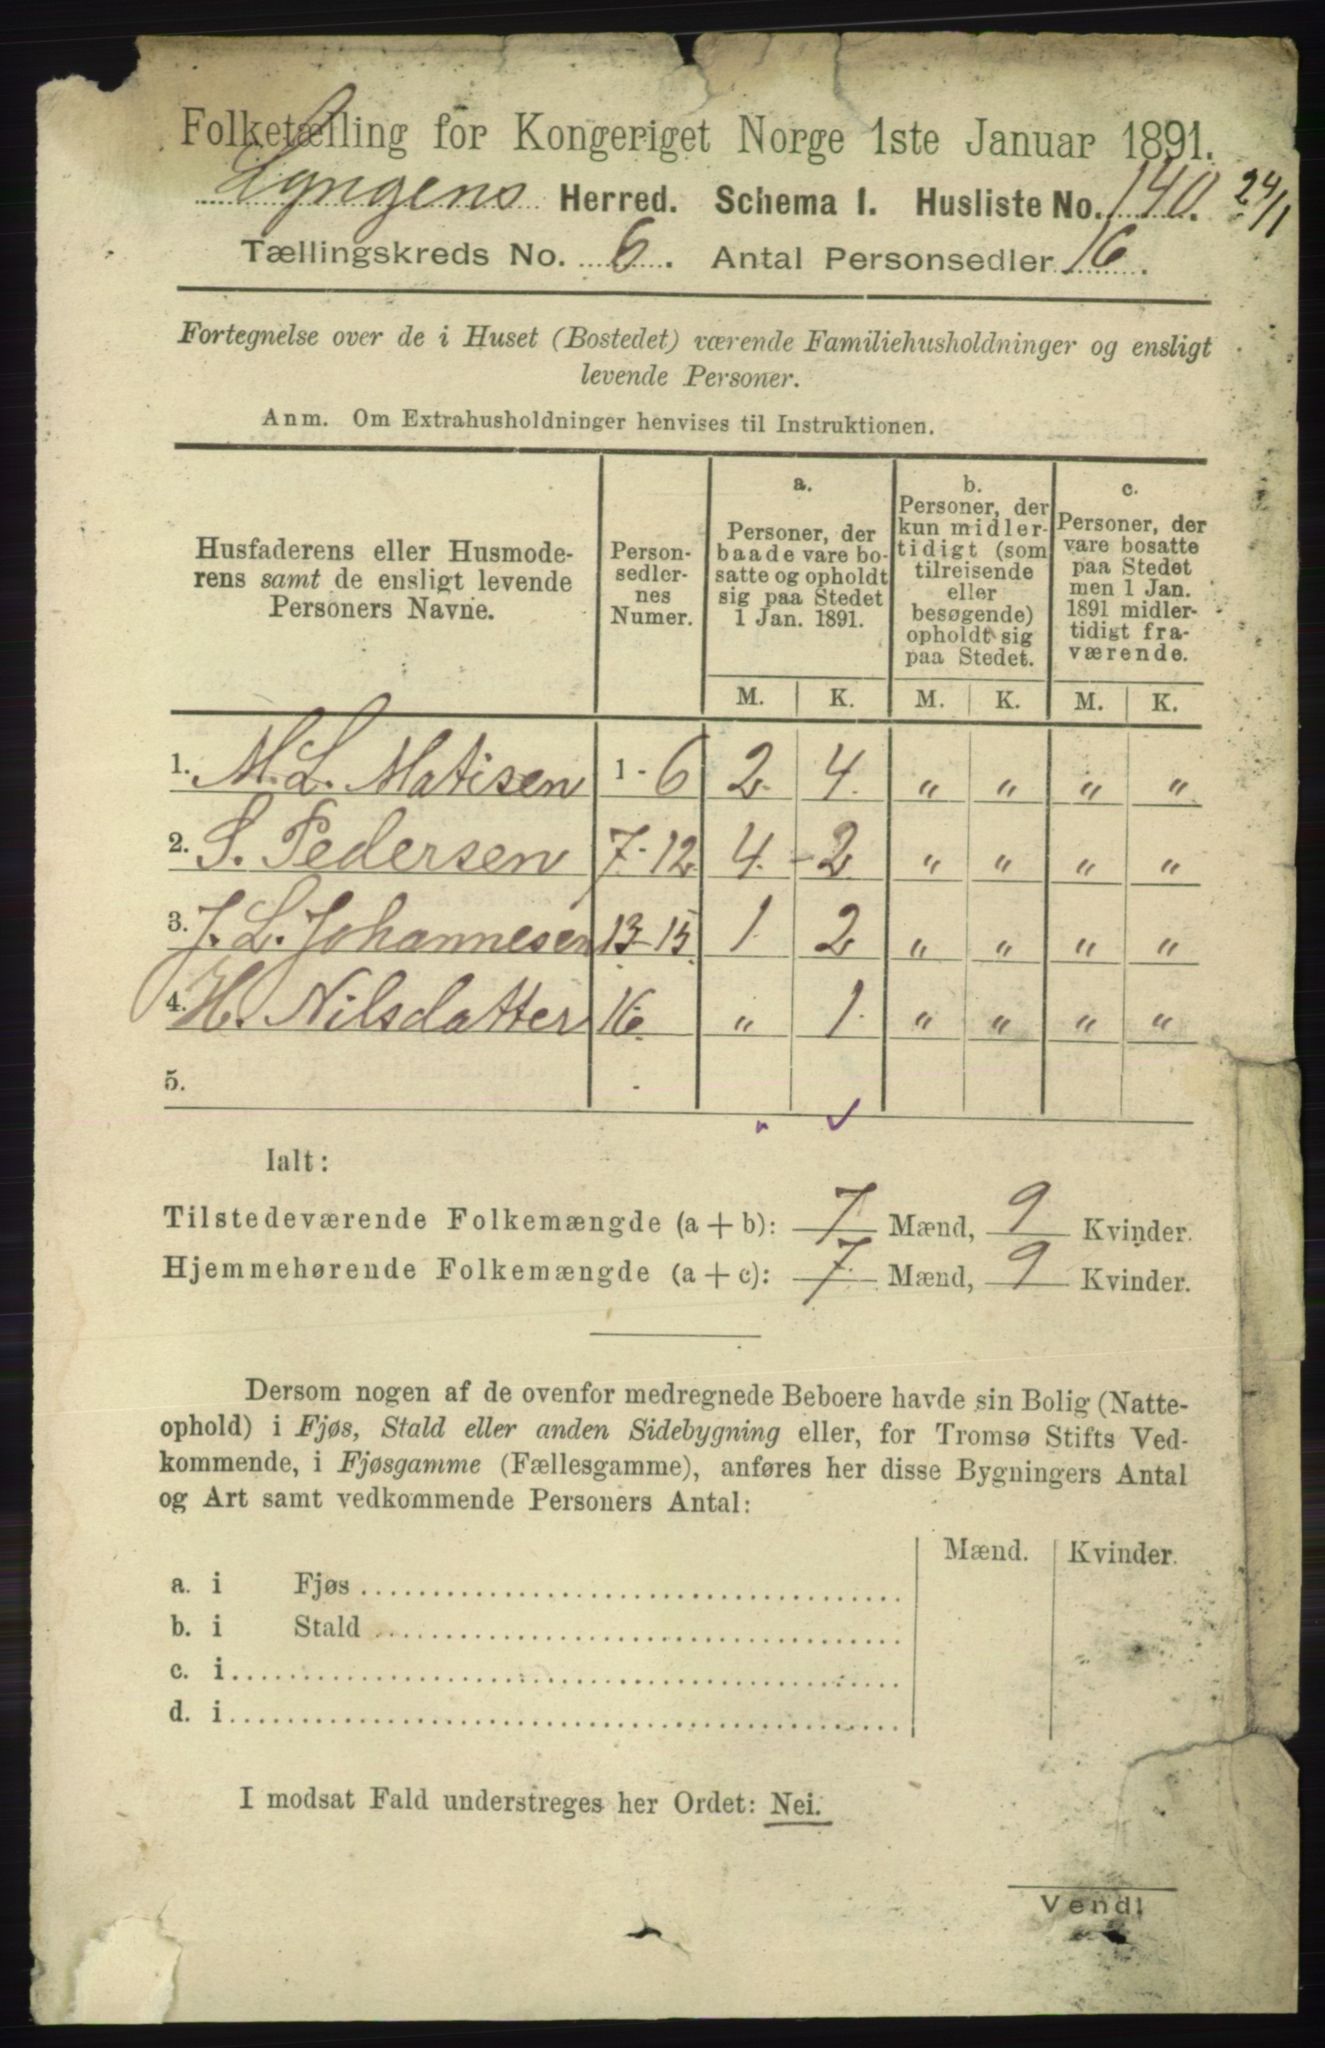 Folketælling for Kongeriget Norge 1ste Januar 1891.
Lyngens Herred. Schema I. Husliste No. 140. 24/1
Tællingskreds No. 6. Antal Personsedler 16.
Fortegnelse over de i Huset (Bostedet) værende Familiehusholdninger og ensligt
levende Personer.
Anm. Om Extrahusholdninger henvises til Instruktionen.
Husfaderens eller Husmode-
rens samt de ensligt levende
Personers Navne.
Person-
sedler-
nes
Numer.
a.
Personer, der
baade vare bo-
satte og opholdt
sig paa Stedet
1 Jan. 1891.
b.
Personer, der
kun midler-
tidigt (som
tilreisende
eller
besøgende)
opholdt sig
paa Stedet.
c.
Personer, der
vare bosatte
paa Stedet
men 1 Jan.
1891 midler-
tidigt fra-
værende.
M. K. M. K. M. K.
1. M. L. Matisen 1 - 6 2 4. " " " "
2. S. Pedersen 7-12 4 - 2 " " " "
3. J. L. Johannesen 13-15 1. 2 " " " "
4. H. Nilsdatter 16 " 1. " " " "
5.
Ialt:
Tilstedeværende Folkemængde (a + b): 7 Mænd, 9 Kvinder.
Hjemmehørende Folkemængde (a + c): 7. Mænd, 9 Kvinder.
Dersom nogen af de ovenfor medregnede Beboere havde sin Bolig (Natte-
ophold) i Fjøs, Stald eller anden Sidebygning eller, for Tromsø Stifts Ved-
kommende, i Fjøsgamme (Fællesgamme), anføres her disse Bygningers Antal
og Art samt vedkommende Personers Antal:
Mænd. Kvinder.
a. i Fjøs
b. i Stald
c. i
d. i
I modsat Fald understreges her Ordet: Nei.
Vend!